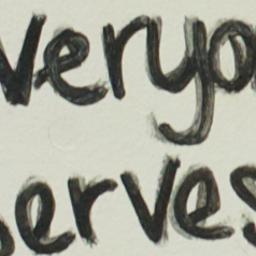 veryo
erves